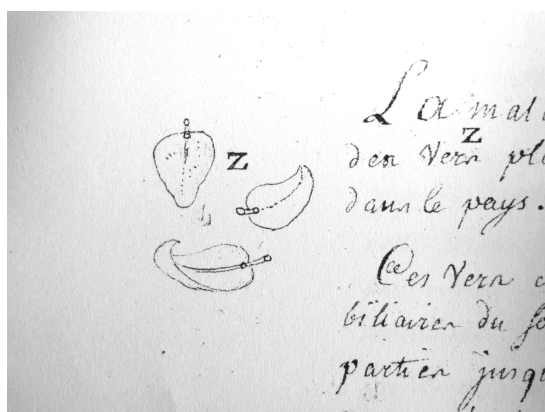 La mal
Z
Z
den Vern ple
dans le pays.
Ces Vern c
biliairen du fo
partien jusqu